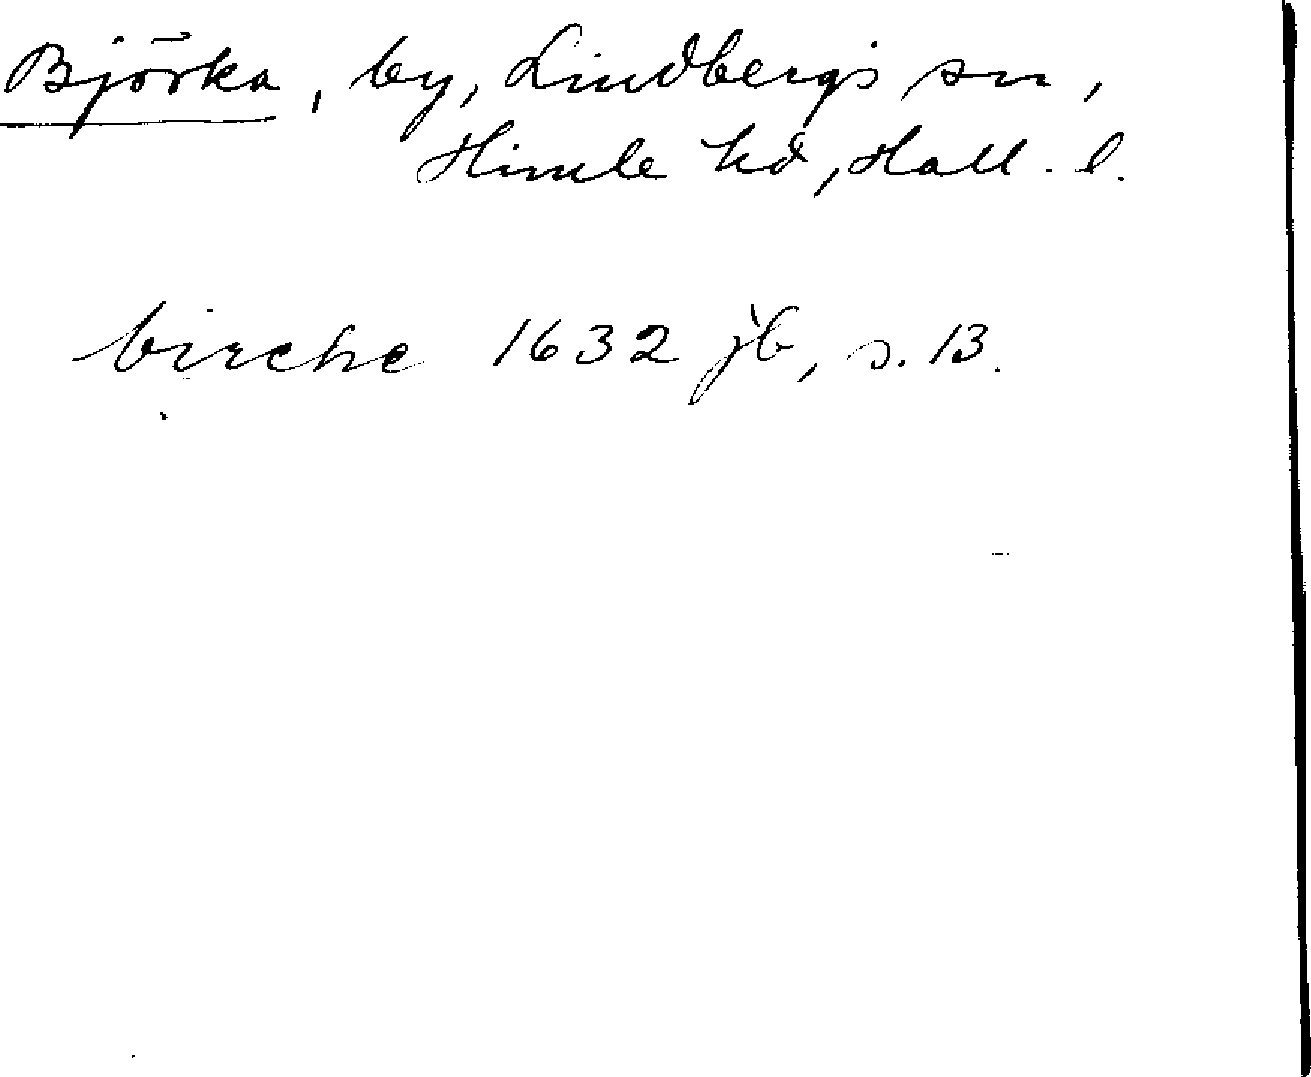 Björka, by, Lindbergs sn,
Himle hd, Hall. l.
birche 1632 jb, s. 13.